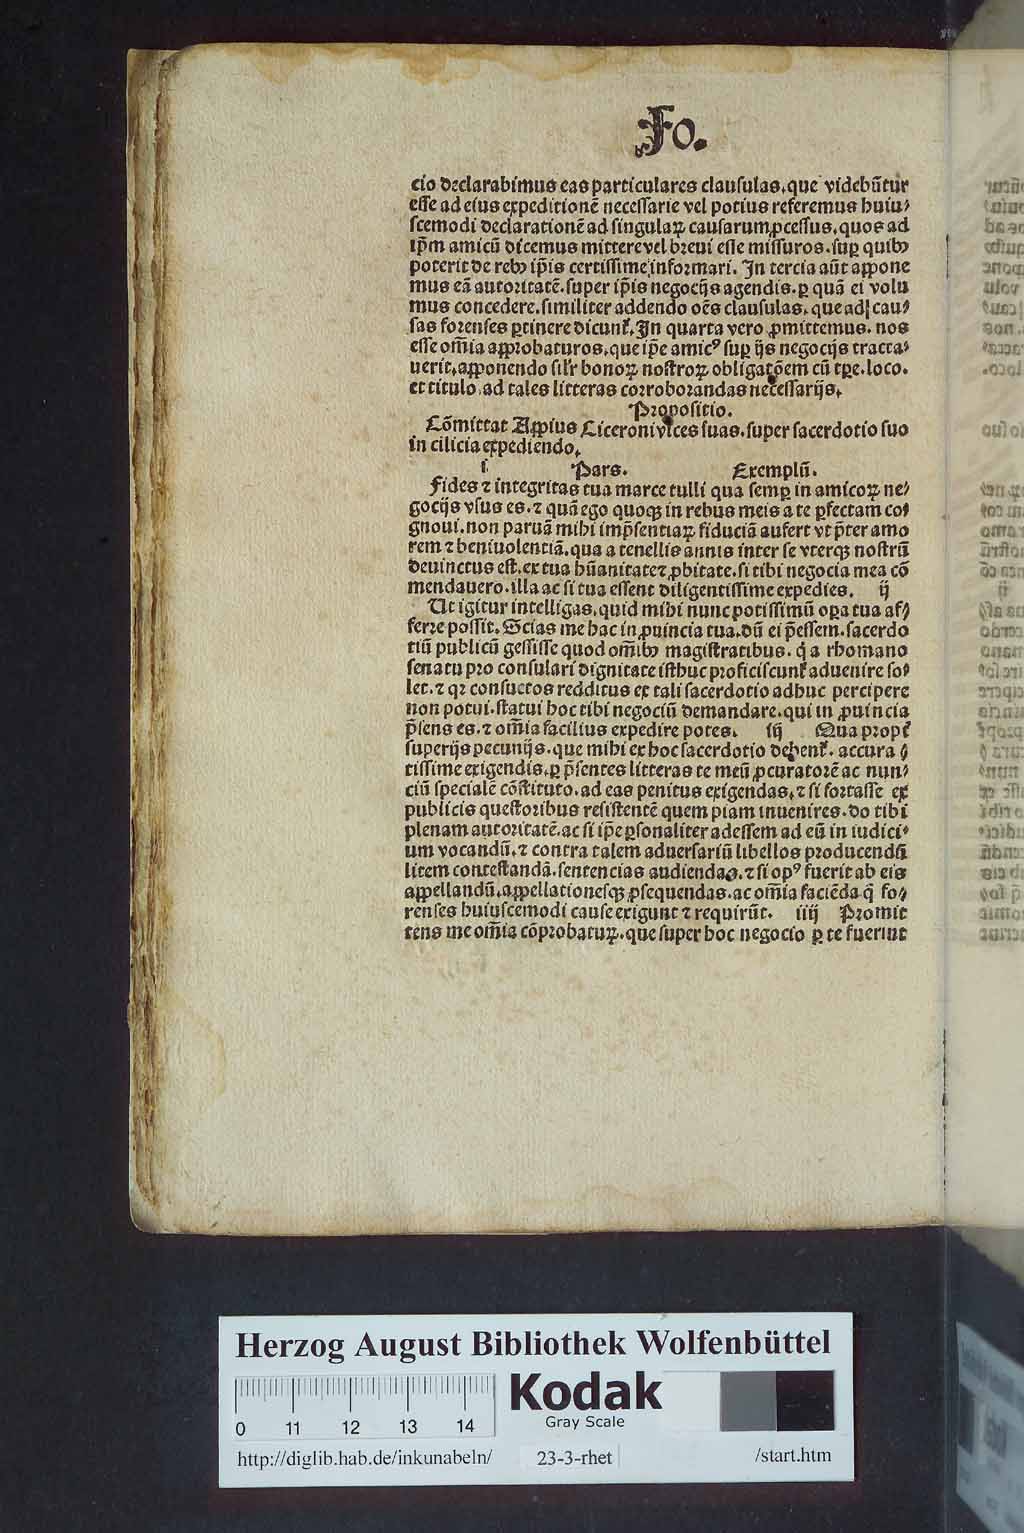 Fo.
cio declarabimus eas particulares clausulas. que videbũtur
esse ad eius expeditionẽ necessarie vel potius referemus huiu⸗
scemodi declarationẽ ad singulaꝝ causarum ꝓcessus. quos ad
ip̃m amicũ dicemus mittere vel breui esse missuros. suꝑ quibꝰ
poterit de rebꝰ ip̃is certissime informari. In tercia aũt appone
mus eã autoritatẽ. super ip̃is negocijs agendis. ꝑ quã ei volu
mus concedere. similiter addendo oẽs clausulas. que ad cau⸗
sas forenses ꝑtinere dicunt᷑. In quarta vero ꝓmittemus. nos
esse om̃ia approbaturos. que ip̃e amicꝰ suꝑ ijs negocijs tracta⸗
uerit. apponendo sil'r bonoꝝ nostroꝝ obligatõem cũ tꝑe. loco.
et titulo. ad tales litteras corroborandas necessarijs.
Propositio.
Cõmittat Appius Ciceroni vices suas. super sacerdotio suo
in cilicia expediendo.
i. Pars. Exemplũ.
Fides ⁊ integritas tua marce tulli qua semꝑ in amicoꝝ ne⸗
gocijs vsus es. ⁊ quã ego quoqꝫ in rebus meis a te ꝑfectam co⸗
gnoui. non paruã mihi imp̃sentiaꝝ fiduciã aufert vt p̃ter amo
rem ⁊ beniuolentiã. qua a tenellis annis inter se vterqꝫ nostrũ
deuinctus est. ex tua hũanitate ⁊ ꝓbitate. si tibi negocia mea cõ
mendauero. illa ac si tua essent diligentissime expedies. ij
Ut igitur intelligas. quid mihi nunc potissimũ oꝑa tua af⸗
ferre possit. Scias me hac in ꝓuincia tua. dũ ei p̃essem. sacerdo
tiũ publicũ gessisse quod om̃ibꝰ magistratibus. q̇ a rhomano
senatu pro consulari dignitate isthuc proficiscunt᷑ aduenire so⸗
let. ⁊ qꝛ consuetos redditus ex tali sacerdotio adhuc percipere
non potui. statui hoc tibi negociũ demandare. qui in ꝓuincia
p̃sens es. ⁊ om̃ia facilius expedire potes. iij Qua propt᷑
super ijs pecunijs. que mihi ex hoc sacerdotio debent᷑. accura⸗
tissime exigendis. ꝑ p̃sentes litteras te meũ ꝓcuratorẽ ac nun⸗
ciũ specialẽ cõstituto. ad eas penitus exigendas. ⁊ si fortasse ex
publicis questoribus resistentẽ quem piam inuenires. do tibi
plenam autoritatẽ. ac si ip̃e ꝑsonaliter adessem ad eũ in iudici⸗
um vocandũ. ⁊ contra talem aduersariũ libellos producendũ
litem contestandã. sentencias audiendas. ⁊ si opꝰ fuerit ab eis
appellandũ. appellationesqꝫ ꝓsequendas. ac om̃ia faciẽda q̃ fo⸗
renses huiuscemodi cause exigunt ⁊ requirũt. iiij Promit
tens me om̃ia cõprobatuꝝ. que super hoc negocio ꝑ te fuerint
Herzog August Bibliothek Wolfenbüttel
0 11 12 13 14
Kodak
Gray Scale
http://diglib.hab.de/inkunabeln/ 23-3-rhet /start.htm